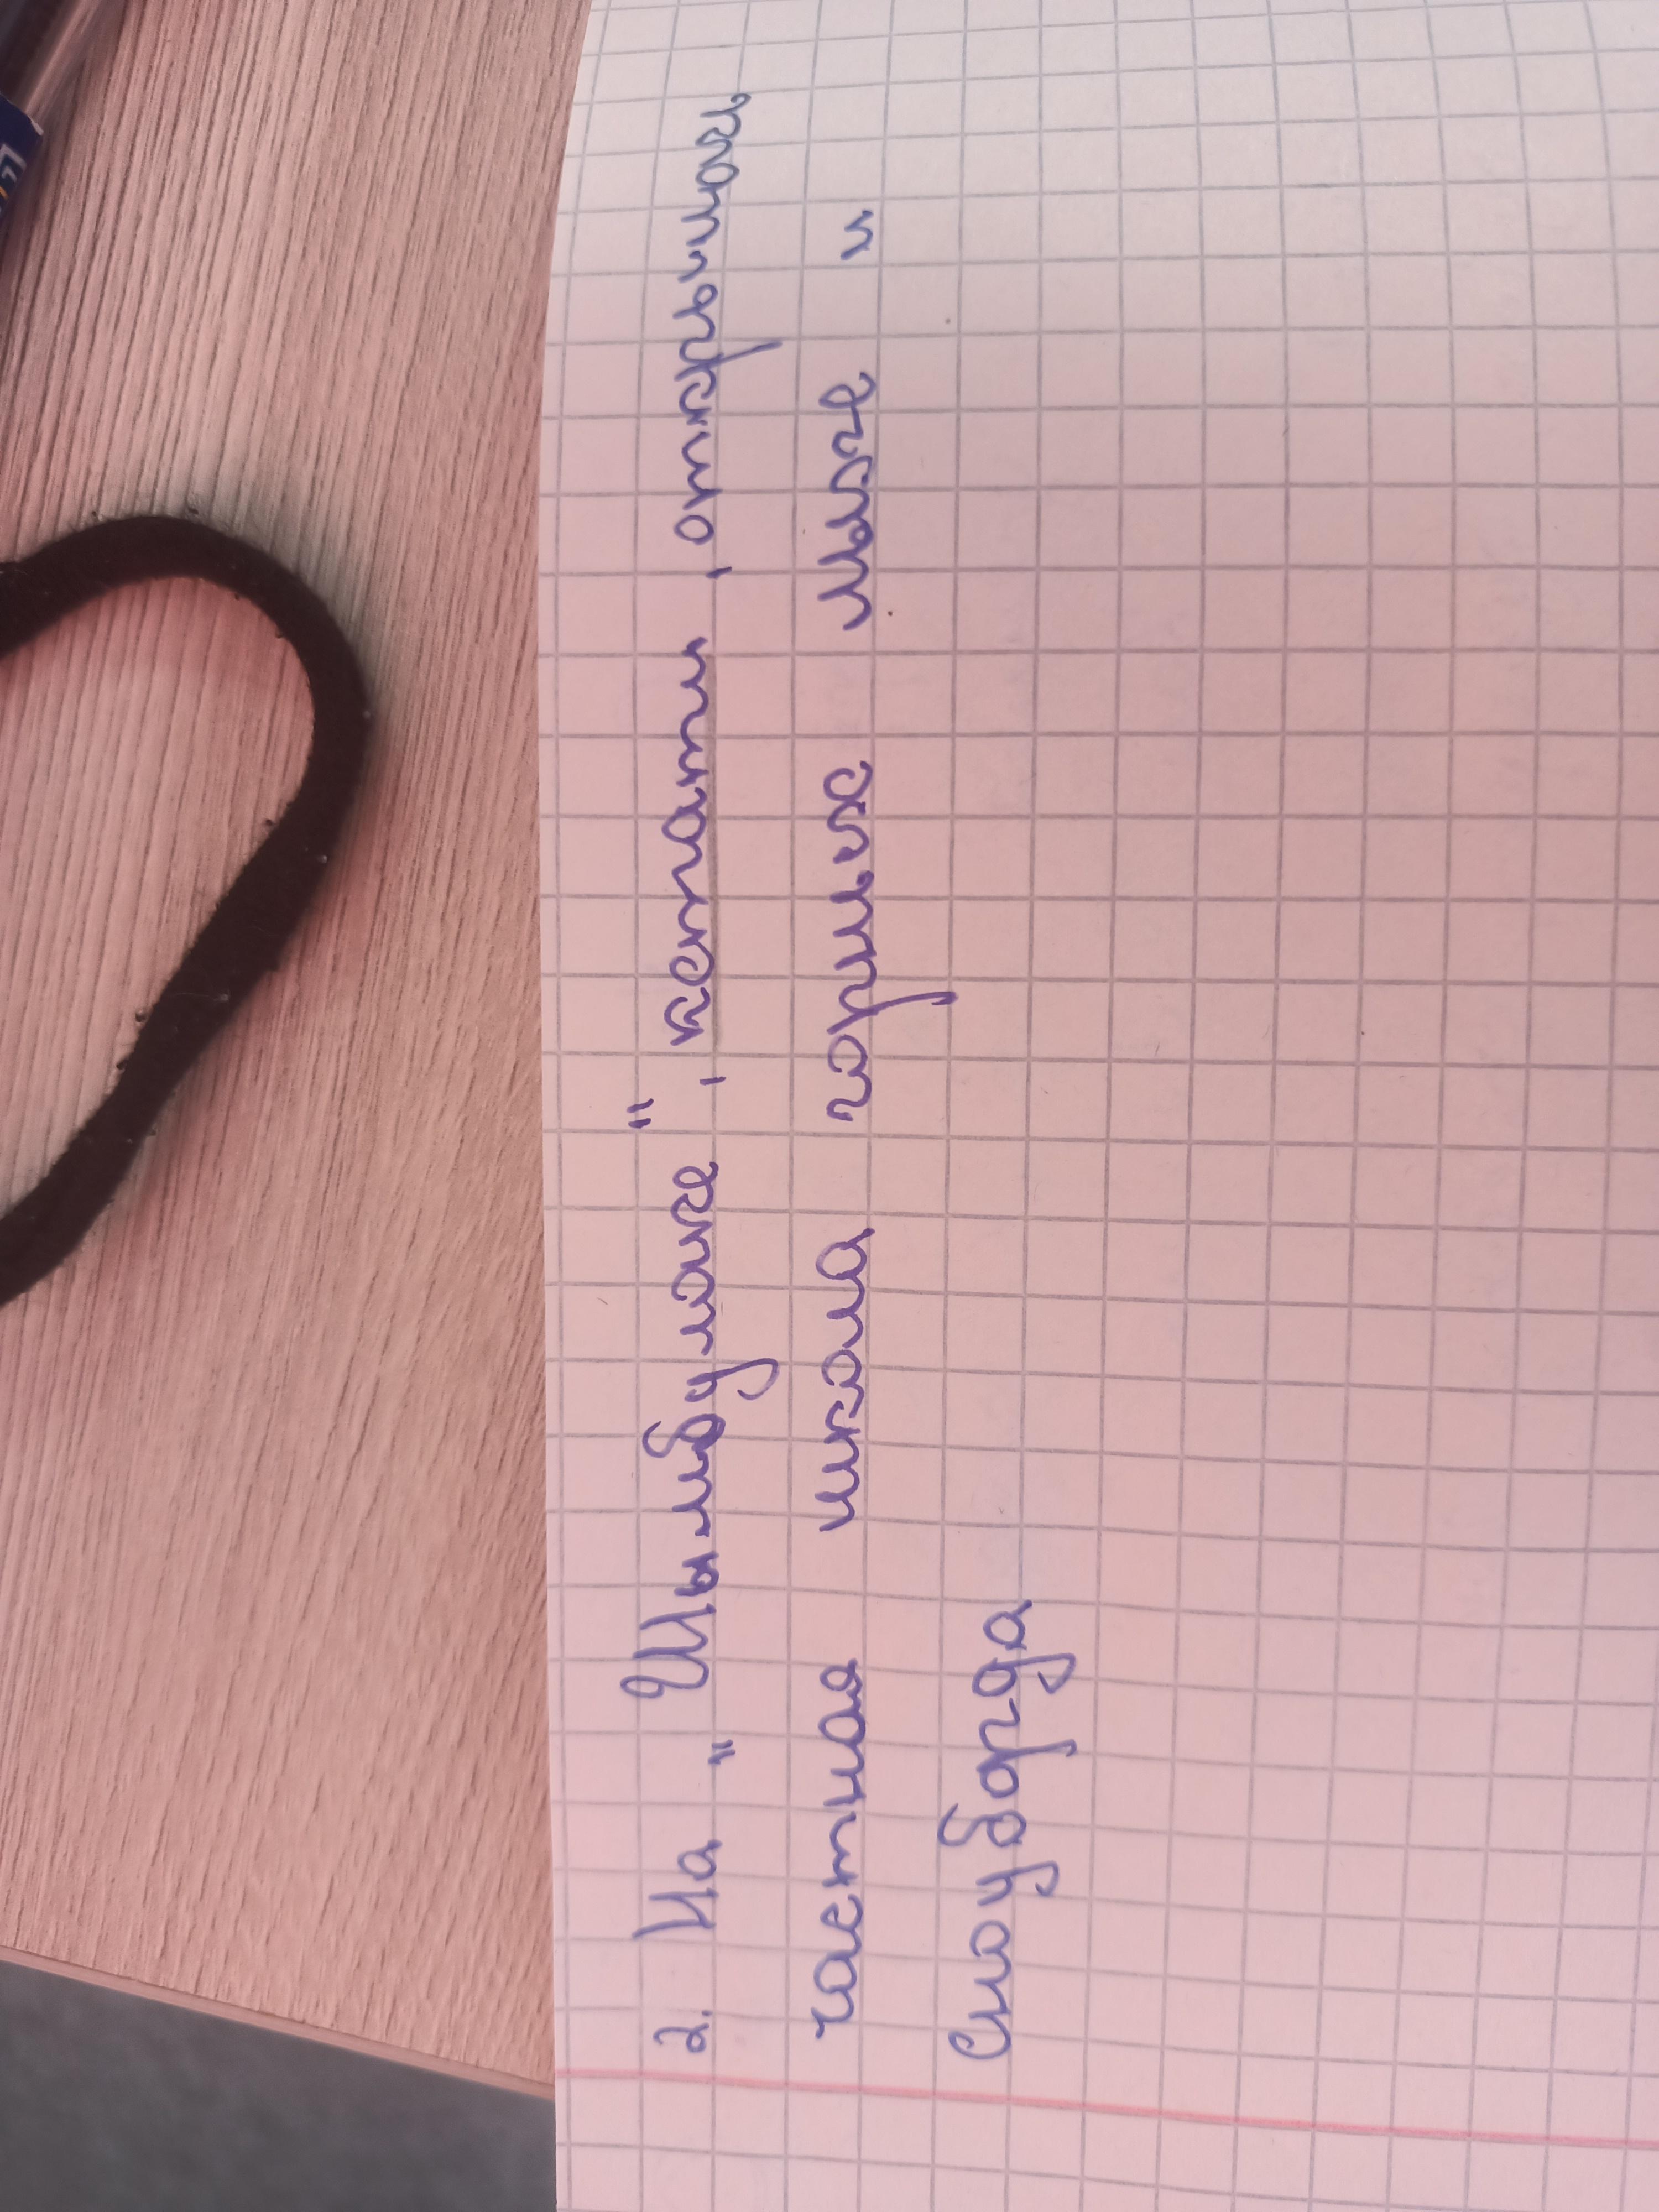 2. На „Шымбулаке", кстати, открылась
частная школа горных лыж и
сноуборда